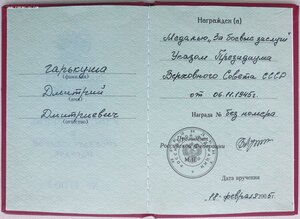 Гаркуша
(фамилия)
Дмитрий
(имя)
Дмитриевич
(отчество)
Награжден (а)
Медалью „За боевые заслуги"
Указом Президиума
Верховного Совета СССР
от 06.11.1945г.
Награда № без номера
Президент
Российской Федерации
М.П.
Дата вручения
"18" февраля 2005г.